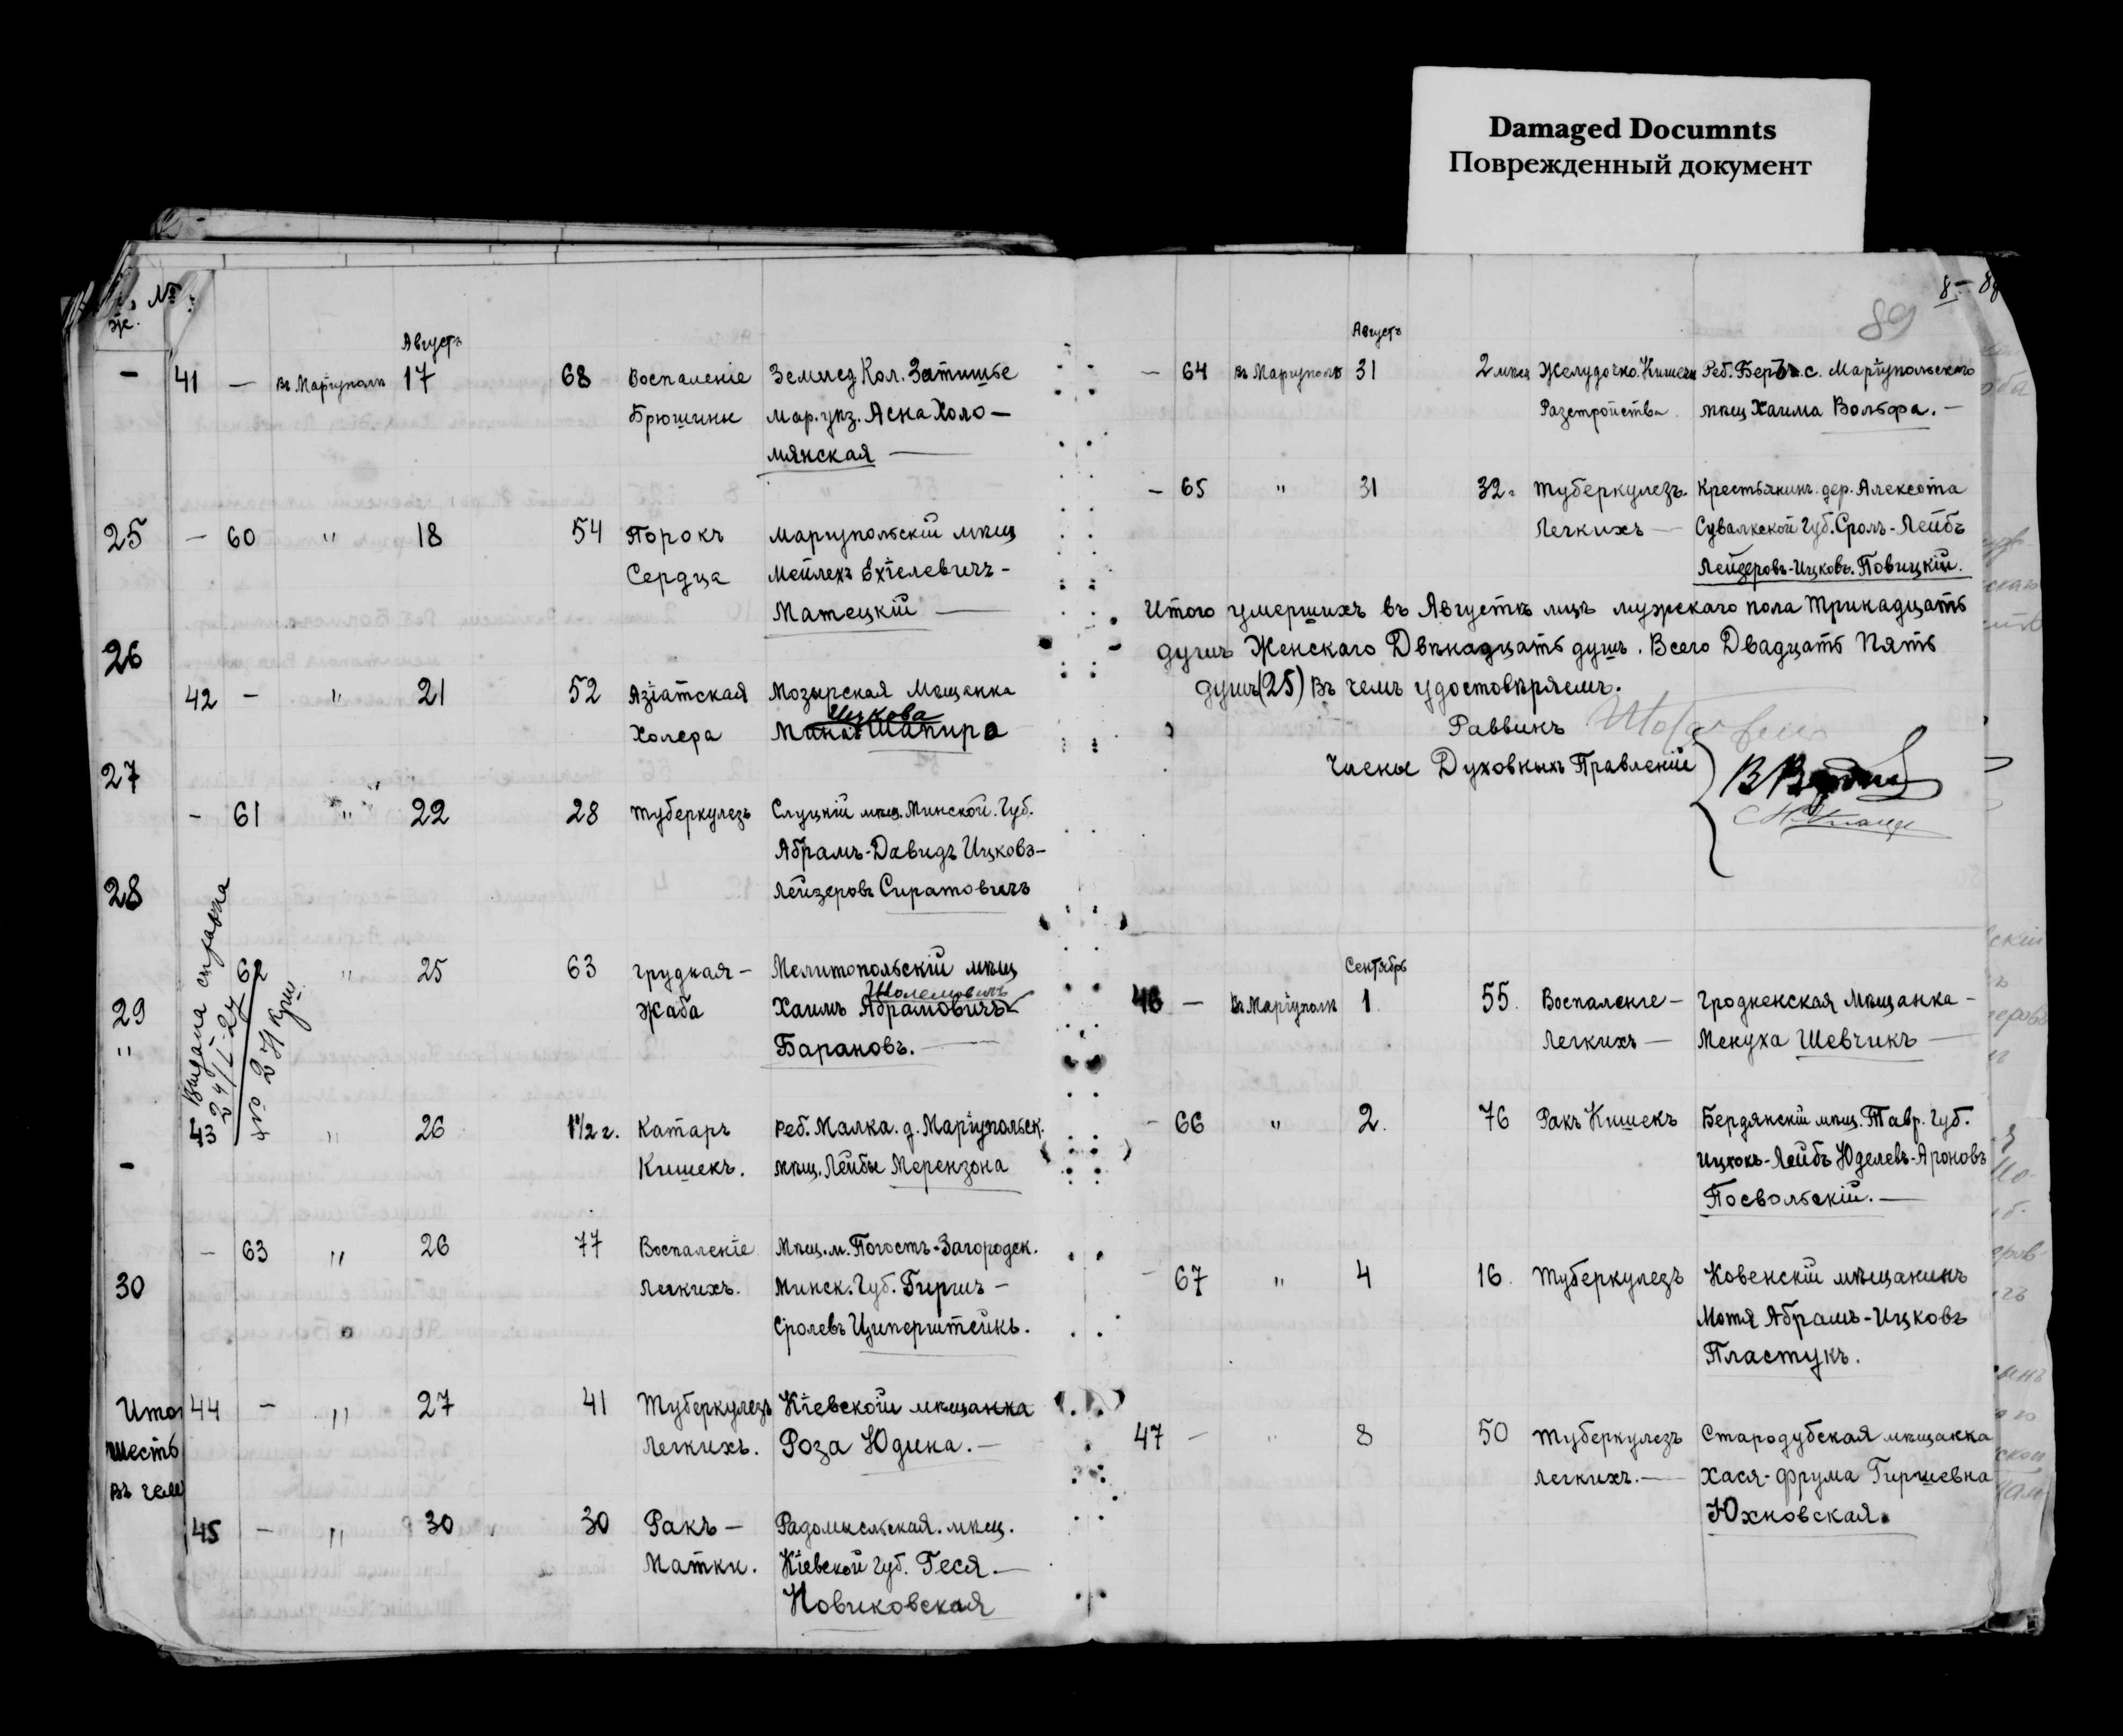 Damaged Documnts
Поврежденный документ
№
8 – 89
89
Августъ
— 41 — въ Маріуполѣ 17 68 Воспаленіе Землед Кол. Затишье
Брюшины Мар. уѣз. Асна Холо —
мянская —
25 — 60 " 18 54 Порокъ Маріупольскій мѣщ
Сердца Мейлехъ Ехіелевичъ -
Матецкій —
26
42 — " 21 52 Азіатская Мозырская Мѣщанка
Ицкова
Холера Мина Шапиро
27
— 61 " 22 28 Туберкулезъ Слуцкій мѣщ. Минской. Губ.
Абрамъ-Давидъ Ицковъ-
28 Лейзеровъ Сиратовичъ
Выдана справка
24/I-27
№ 274
62 " 25 63 Грудная - Мелитопольскій мѣщ
Шолемовичъ
29 Жаба Хаимъ Абрамовичъ
" Барановъ. —
43 " 26 1 1/2 г. Катаръ Реб. Малка. д. Маріупольск.
— Кишекъ. мѣщ. Лейбы Мерензона
— 63 " 26 77 Воспаленіе Мѣщ. м. Погостъ-Загородск.
30 Легкихъ. Минск. Губ. Гиршъ -
Сролевъ Циперштейнъ.
Итог 44 — " 27 41 Туберкулезъ Кіевской мѣщанка
шесть Легкихъ. Роза Юдина. —
въ чем
45 — " 30 30 Ракъ — Радомысльская. мѣщ.
Матки. Кіевской Губ. Геся. —
Новиковская
Августъ
— 64 въ Маріуполѣ 31 2 мѣся Желудочно. Кишечн Реб. Беръ. с. Маріупольскаго
Разстройства. мѣщ Хаима Вольфа. —
— 65 " 31 32. Туберкулезъ. Крестьянинъ. дер. Алексота
Легкихъ — Сувалкской Губ. Сроль-Лейбъ
Лейзеровъ-Ицковъ. Повицкій.
Итого умершихъ въ Августѣ лицъ мужскаго пола Тринадцать
душъ Женскаго Двѣнадцать душъ. Всего Двадцать Пять
душъ (25) Въ чемъ удостовѣряемъ.
Раввинъ
Члены Духовныхъ Правленій
Сентябрь
46 — въ Маріуполѣ 1 55. Воспаленіе — Гродненская Мѣщанка -
Легкихъ — Менуха Шевчикъ —
— 66 " 2. 76 Ракъ Кишекъ Бердянскій мѣщ. Тавр. Губ.
Ицхокъ-Лейбъ Юделевъ-Ароновъ
Посвольскій. —
— 67 " 4 16. Туберкулезъ Ковенскій мѣщанинъ
Мотя Абрамъ-Ицковъ
Пластукъ.
47 — " 8 50 Туберкулезъ Стародубская мѣщанка
Легкихъ. — Хася-Фрума Гиршевна
Юхновская.